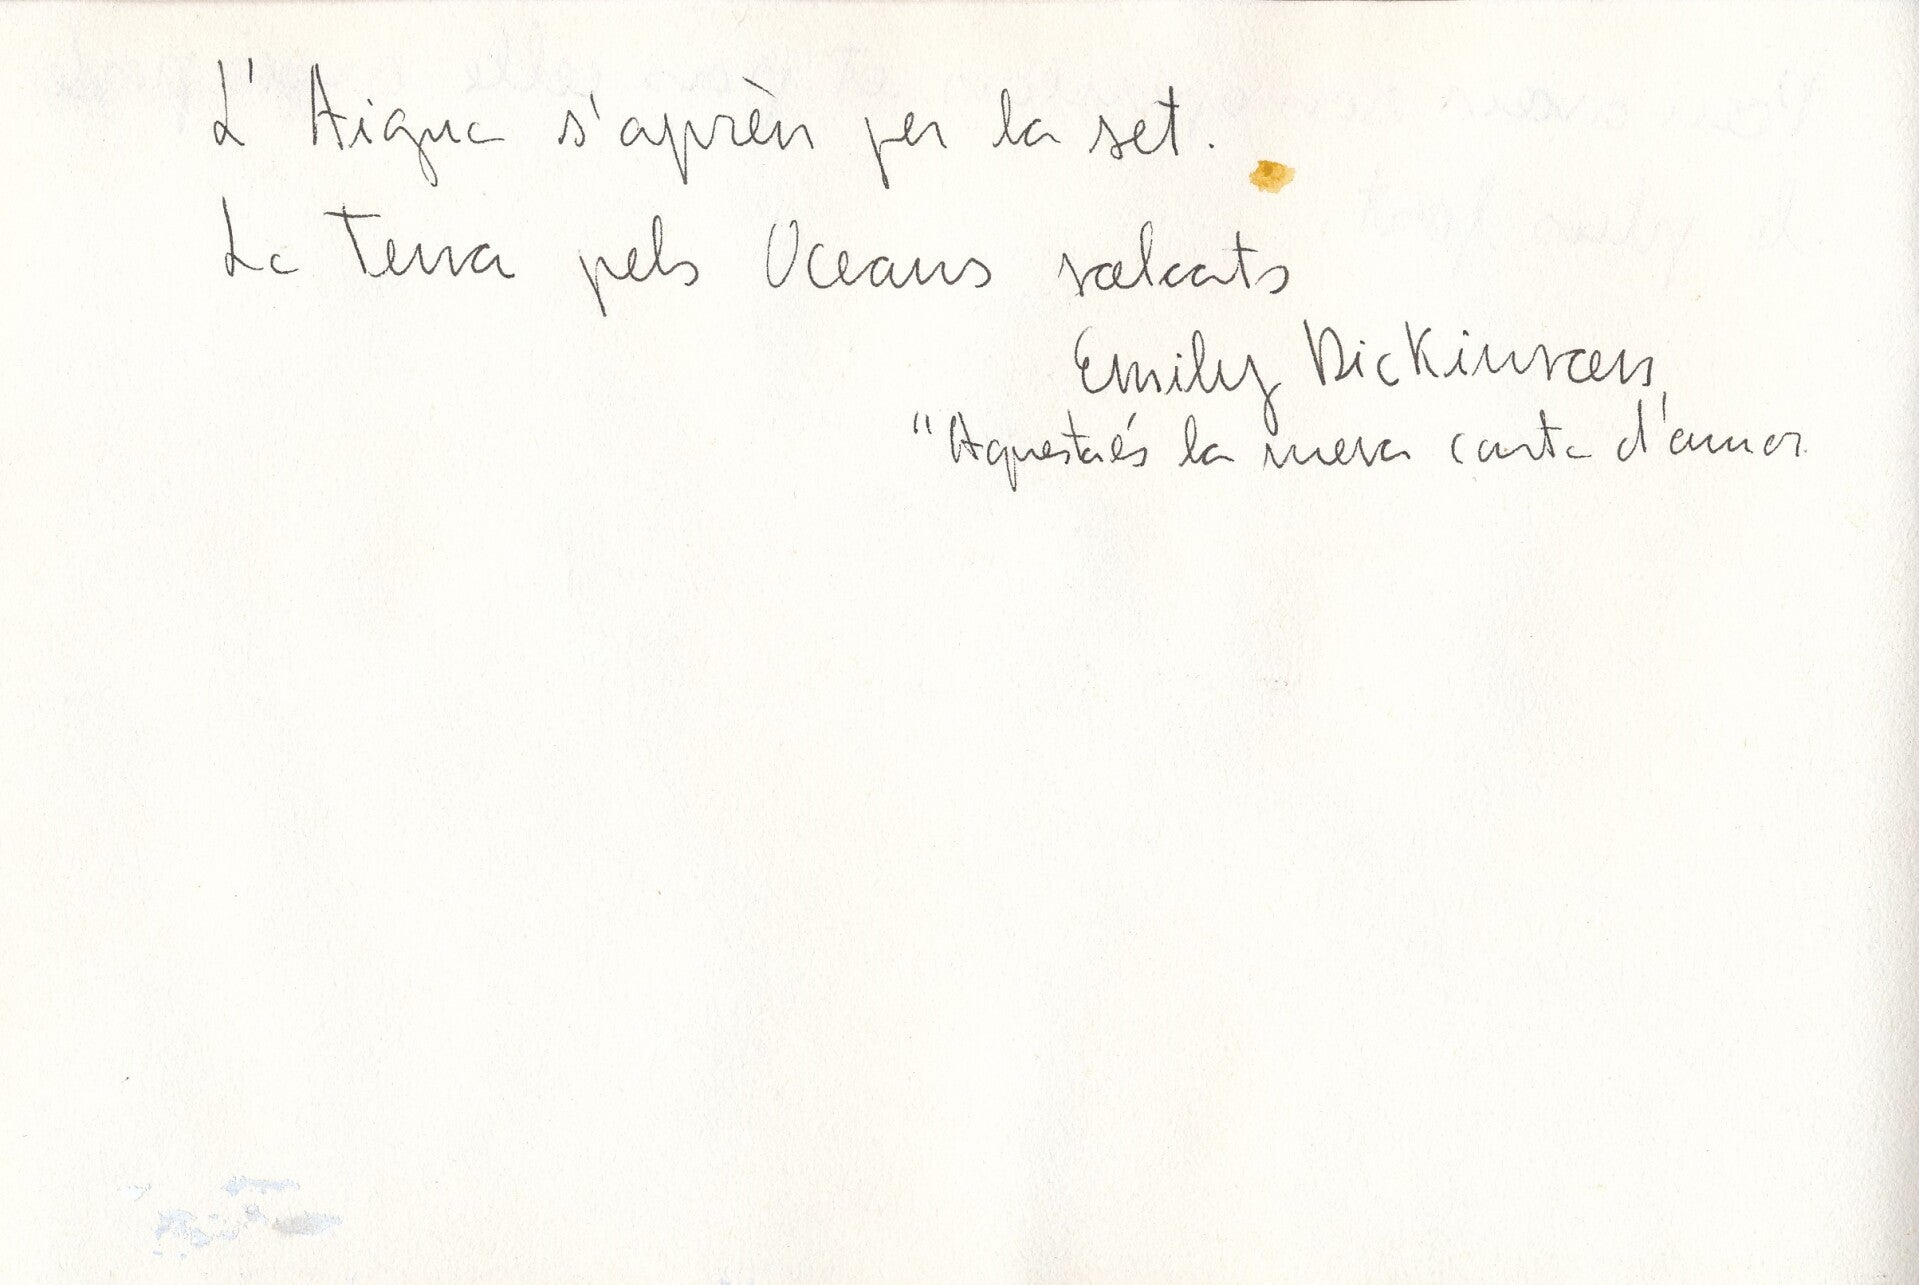 L'Aigua s'aprèn per la set.
La Terra pels Oceans solcats
Emily Dickinson
"Aquesta és la meva carta d'amor